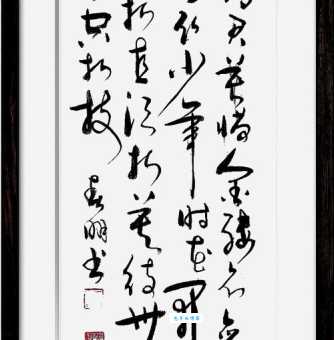 君莫惜金缕衣
取少年时花开
折直须折莫待世
空折枝
春明书